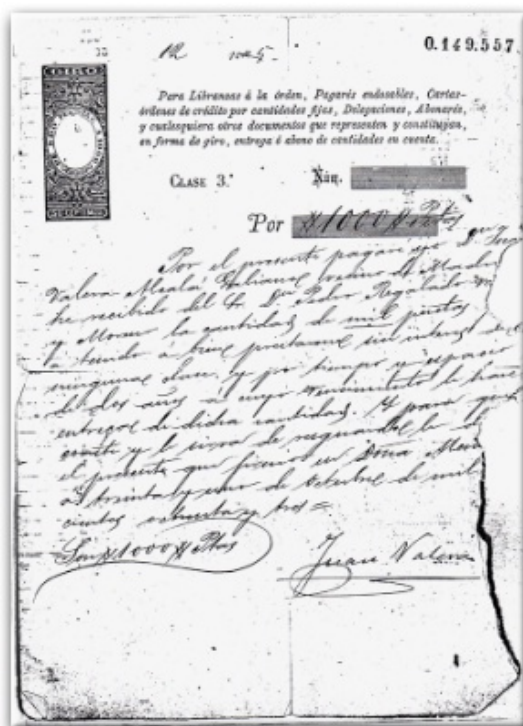 0.149.557
GIRO
Para Libranzas á la órden, Pagarés endosables, Cartas-
órdenes de crédito por cantidades fijas, Delegaciones, Abonarés,
y cualesquiera otros documentos que representen y constituyan,
en forma de giro, entrega ó abono de cantidades en cuenta.
CLASE 3.ª Núm.
Por 1000 Ptas
Por el presente pagaré yo D. Juan
Valera Alcalá Galiano vecino de
he recibido del Sr. Dn. Pedro Regalado
y Moreno la cantidad de mil pesetas
tenido á bien prestarme sin interes de
ninguna clase y por tiempo y espacio
de dos años á cuyo vencimiento le
entrega de dicha cantidad. Y para que
conste y le sirva de resguardo le doy
el presente que firmo en Doña
á treinta y uno de Octubre de mil
cientos ochenta y tres =
Son 1000 Ptas
Juan Valera